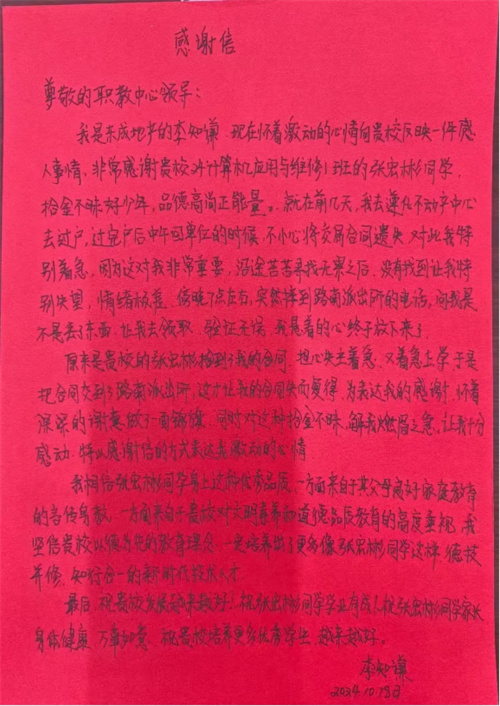 感谢信
尊敬的职教中心领导：
我是东成地产的李知谦，现在怀着激动的心情向贵校反映一件感
人事情，非常感谢贵校24计算机应用与维修1班的张宏彬同学，
拾金不昧好少年，品德高尚正能量。就在前几天，我去遵化不动产中心
去过户，过完户后中午回单位的时候，不小心将交易合同遗失，对此我特
别着急，因为这对我非常重要，沿途苦苦寻找无果之后，没有找到让我特
别失望，情绪放差，傍晚7点左右，突然接到路南派出所的电话，问我是
不是丢了东西，让我去领取，验证无误，我悬着的心终于放下来了
原来是贵校的张宏彬捡到了我的合同，担心失主着急，又着急上学于是
把合同交到了路南派出所，这才让我的合同失而复得，为表达我的感谢，怀着
深深的谢意做了一面锦旗，同时对这种拾金不昧，解我燃眉之急，让我十分
感动，特以感谢信的方式表达我激动的心情
我相信张宏彬同学身上这种优秀品质，一方面来自于其父母良好家庭教育
的言传身教，一方面来自于贵校对文明素养和道德品质教育的高度重视，我
坚信贵校以德为先的教育理念，一定培养出了更多像张宏彬同学这样，德技
并修，知行合一的新时代技术人才
最后，祝贵校发展越来越好！祝张宏彬同学学业有成！祝张宏彬同学家长
身体健康，万事如意，祝贵校培养更多优秀学生，越来越好。
李知谦
2024.10.